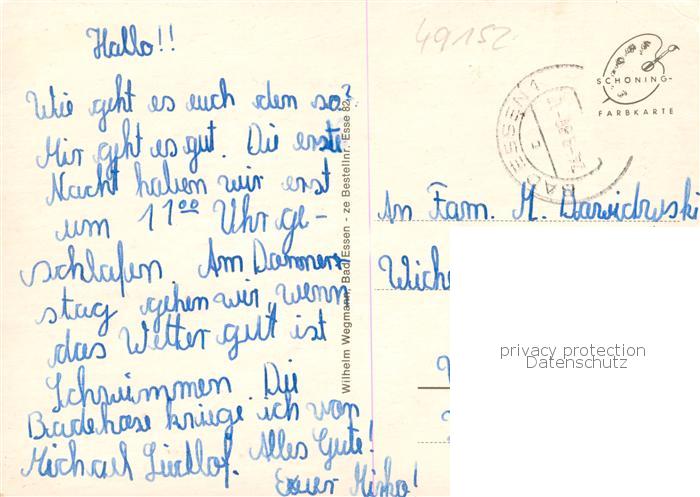 Hallo!!
Wie geht es euch den so?
Mir geht es gut. Die erste
Nacht haben wir erst
um 11⁰⁰ Uhr ge-
schlafen. Am Danners
stag gehen wir, wenn
das Wetter gut ist
Schwimmen. Die
Badehose kriege ich von
Michael Lücklof. Alles Gute!
Euer Mirko!
Wilhelm Wegmann, Bad Essen - ze Bestellnr. Esse 82
49152
BAD ESSEN 1
SCHÖNING-
FARBKARTE
An Fam. M. Dawidowski
privacy protection
Datenschutz